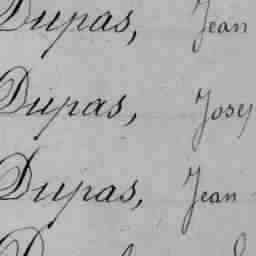 Dupas, Jean
Dupas, Josep
Dupas, Jean